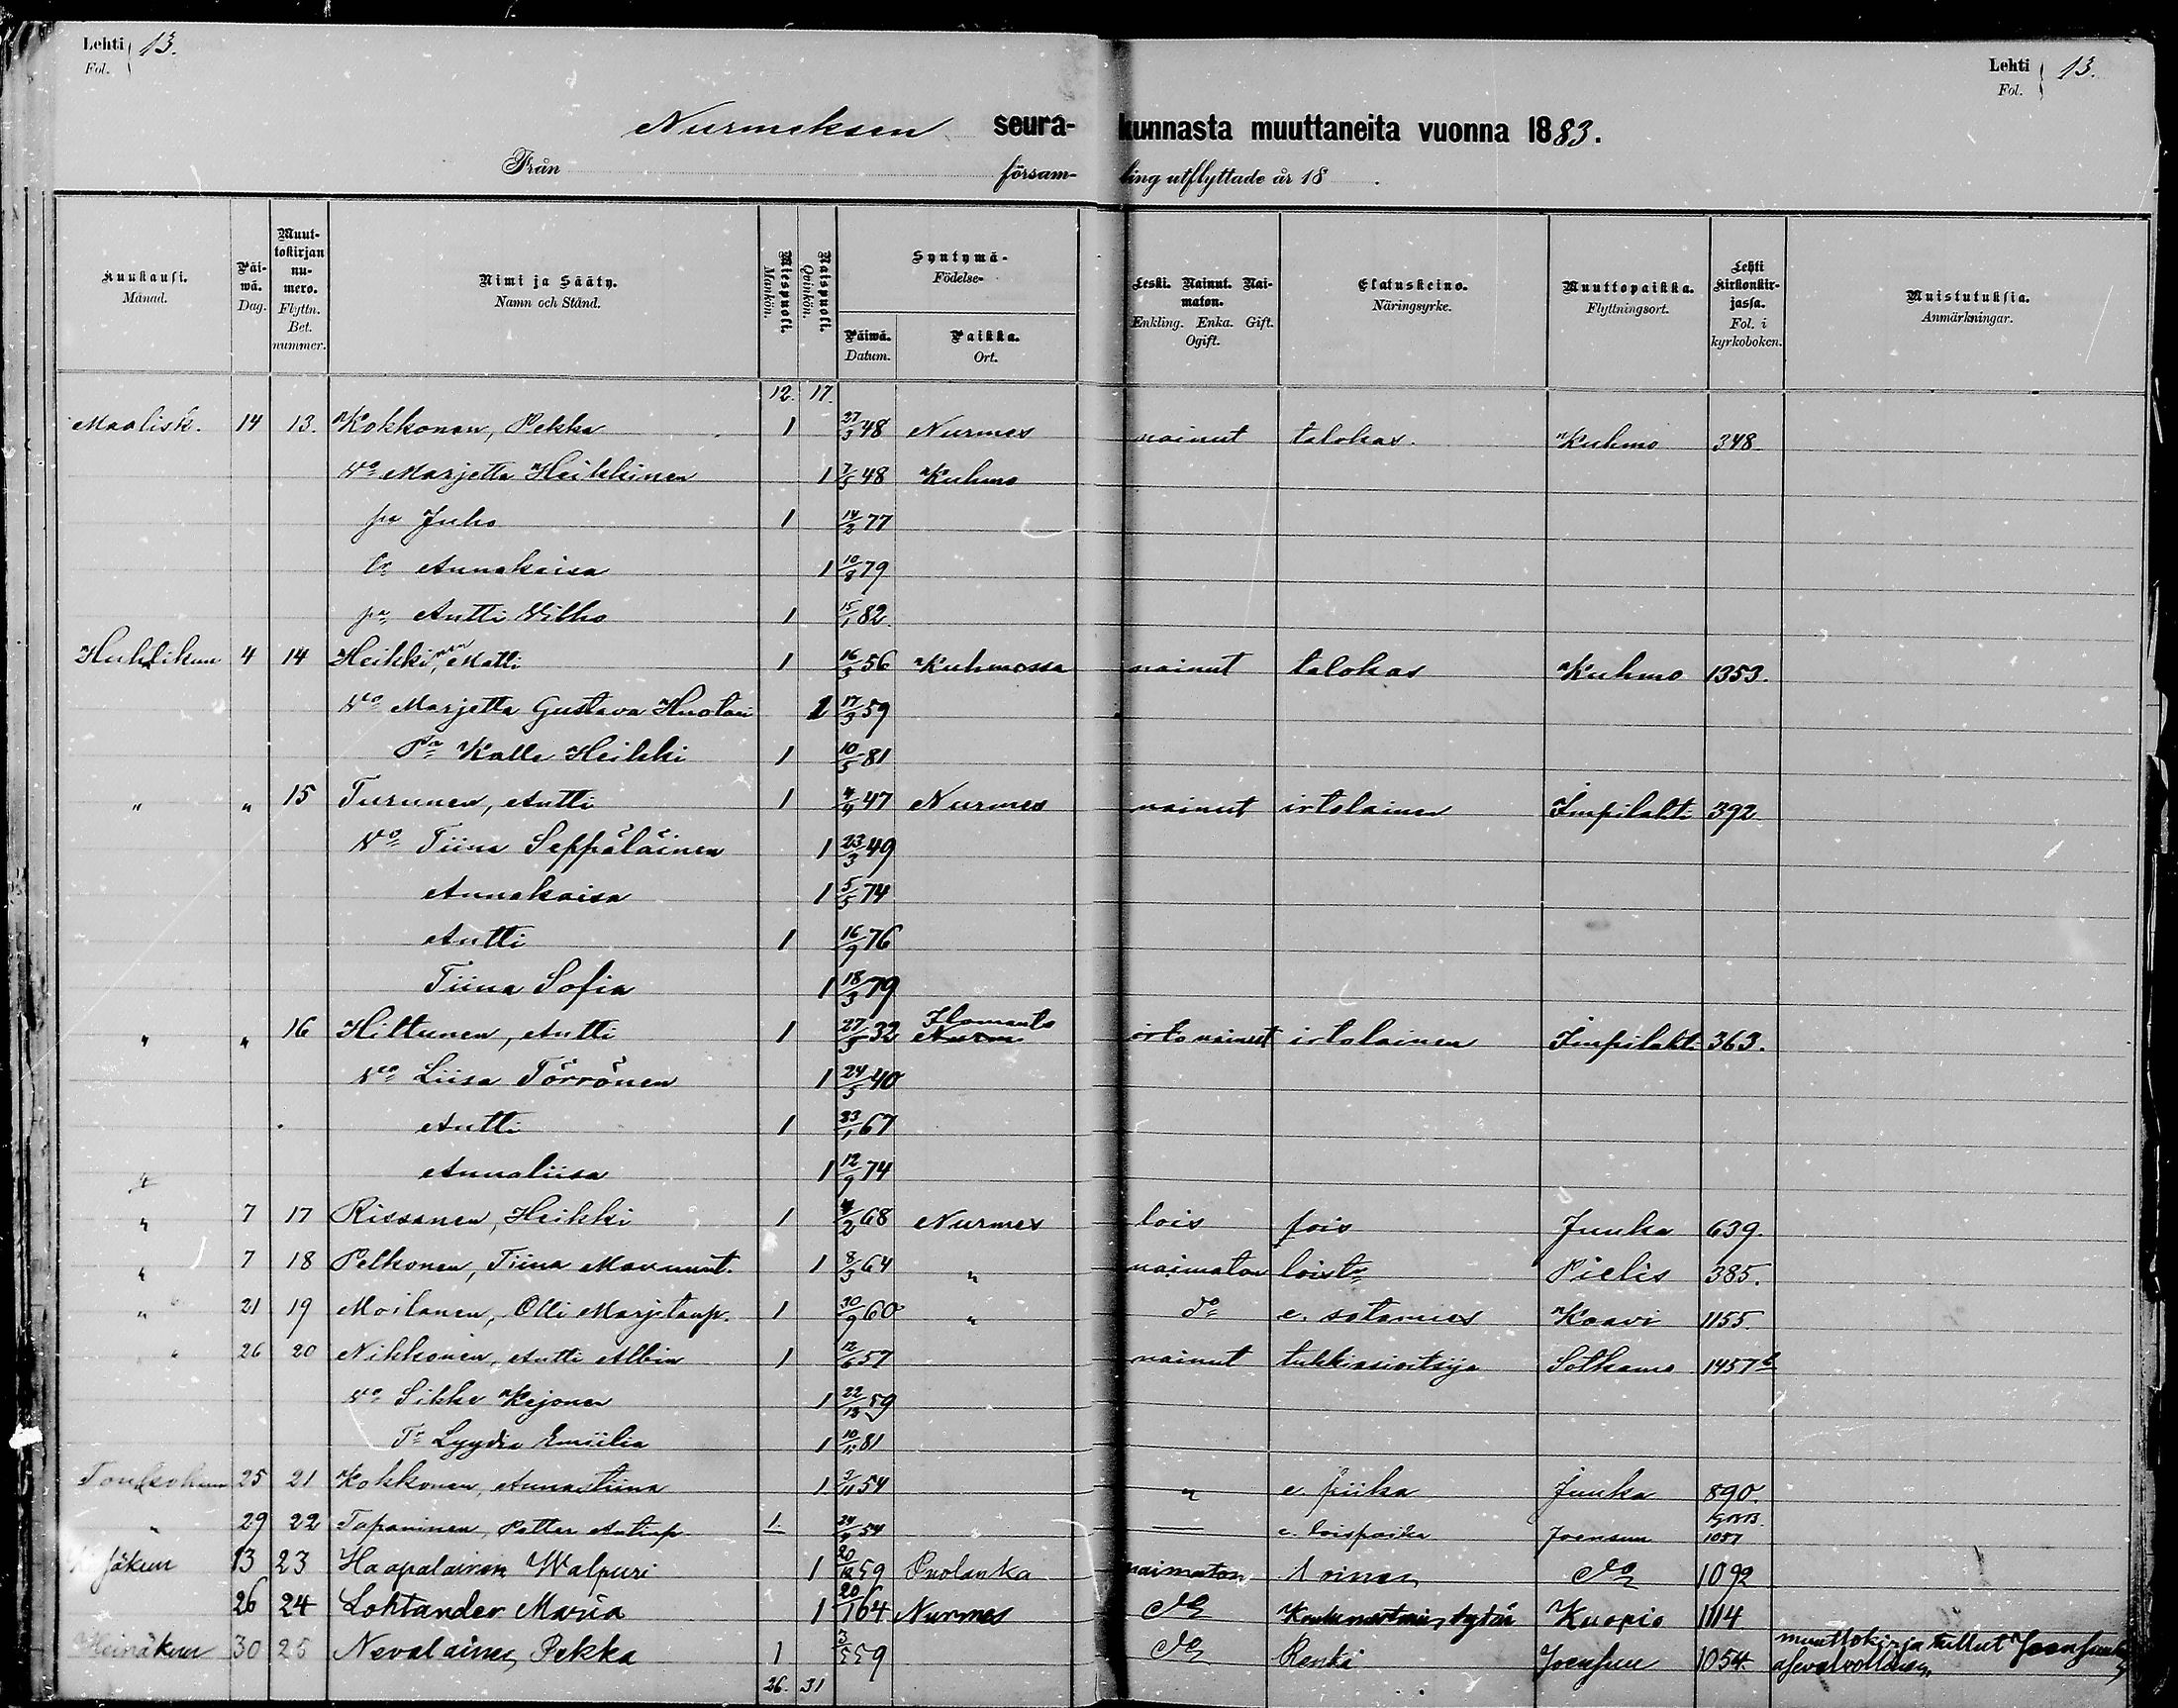 Lehti 13.
Fol.
Lehti 13.
Fol.
Nurmeksen seura- kunnasta muuttaneita vuonna 1883.
Från försam- ling utflyttade år 18 .
Kuukausi. Månad. Päi-wä. Dag. Muut-tokirjan nu-mero. Flyttn. Bet. nummer. Nimi ja Sääty. Namn och Stånd. Miespuoli. Mankön. Naispuoli. Qvinkön. Syntymä- Födelse- Päiwä. Datum. Paikka. Ort. Leski. Nainut. Nai-maton. Enkling. Enka. Gift. Ogift. Elatuskeino. Näringsyrke. Muuttopaikka. Flyttningsort. Lehti Kirkonkir-jassa. Fol. i kyrkoboken. Muistutuksia. Anmärkningar.
12. 17.
Maalisk. 14 13. Kokkonen, Pekka 1 27/3 48 Nurmes nainut talokas. Kuhmo 348
Vo Marjetta Heikkinen 1 7/5 48 Kuhmo
pa Juho 1 14/2 77
Annakaisa 1 10/8 79
pa Antti Vilho 1 15/1 82.
Huhtikuu 4 14 Heikkinen, Matti 1 16/5 56 Kuhmossa nainut talokas Kuhmo 1353.
Vo Marjetta Gustava Huotari 1 17/3 59
Pa Kalle Heikki 1 10/5 81
" " 15 Turunen, Antti 1 4/9 47 Nurmes nainut irtolainen Impilahti 392
Vo Tiina Seppäläinen 1 23/3 49
Annakaisa 1 5/5 74
Antti 1 16/9 76
Tiina Sofia 1 18/3 79
" " 16 Hiltunen, Antti 1 27/5 32 Ilomants Nurm irto nainut irtolainen Impilaht. 363.
Vo Liisa Törrönen 1 24/5 40
Antti 1 23/1 67
Annaliisa 1 12/9 74
" 7 17 Rissanen, Heikki 1 4/2 68 Nurmes lois lois Juuka 639.
" 7 18 Pelkonen, Tiina 1 8/3 64 " naimaton loist Pielis 385.
" 21 19 Moilanen, Olli Marjetanp. 1 30/9 60 " do e. sotamies Kaavi 1155.
" 26 20 Nikkonen, Antti Albin 1 12/6 57 nainut Sotkamo 1457
Vo Sikke Kejonen 1 22/12 59
Tr Lyydia Emiilia 1 10/11 81
Toukokuu 25 21 Kokkonen, Annastiina 1 3/11 54 " e. piika Juuka 890.
" 29 22 Tapaninen, Petter Antinp. 1. 24/4 54 — e. loispoika Joensuu 1057
Kesäkuu 13 23 Haapalainen Walpuri 1 20/12 59 Puolanka naimaton do 1092
26 24 Lohtander Maria 1 20/1 64 Nurmes do tytär Kuopio 1114
Heinäkuu 30 25 Nevalainen, Pekka 1 3/5 59 do Renki Joensuu 1054. muuttokirja tullut
26. 31